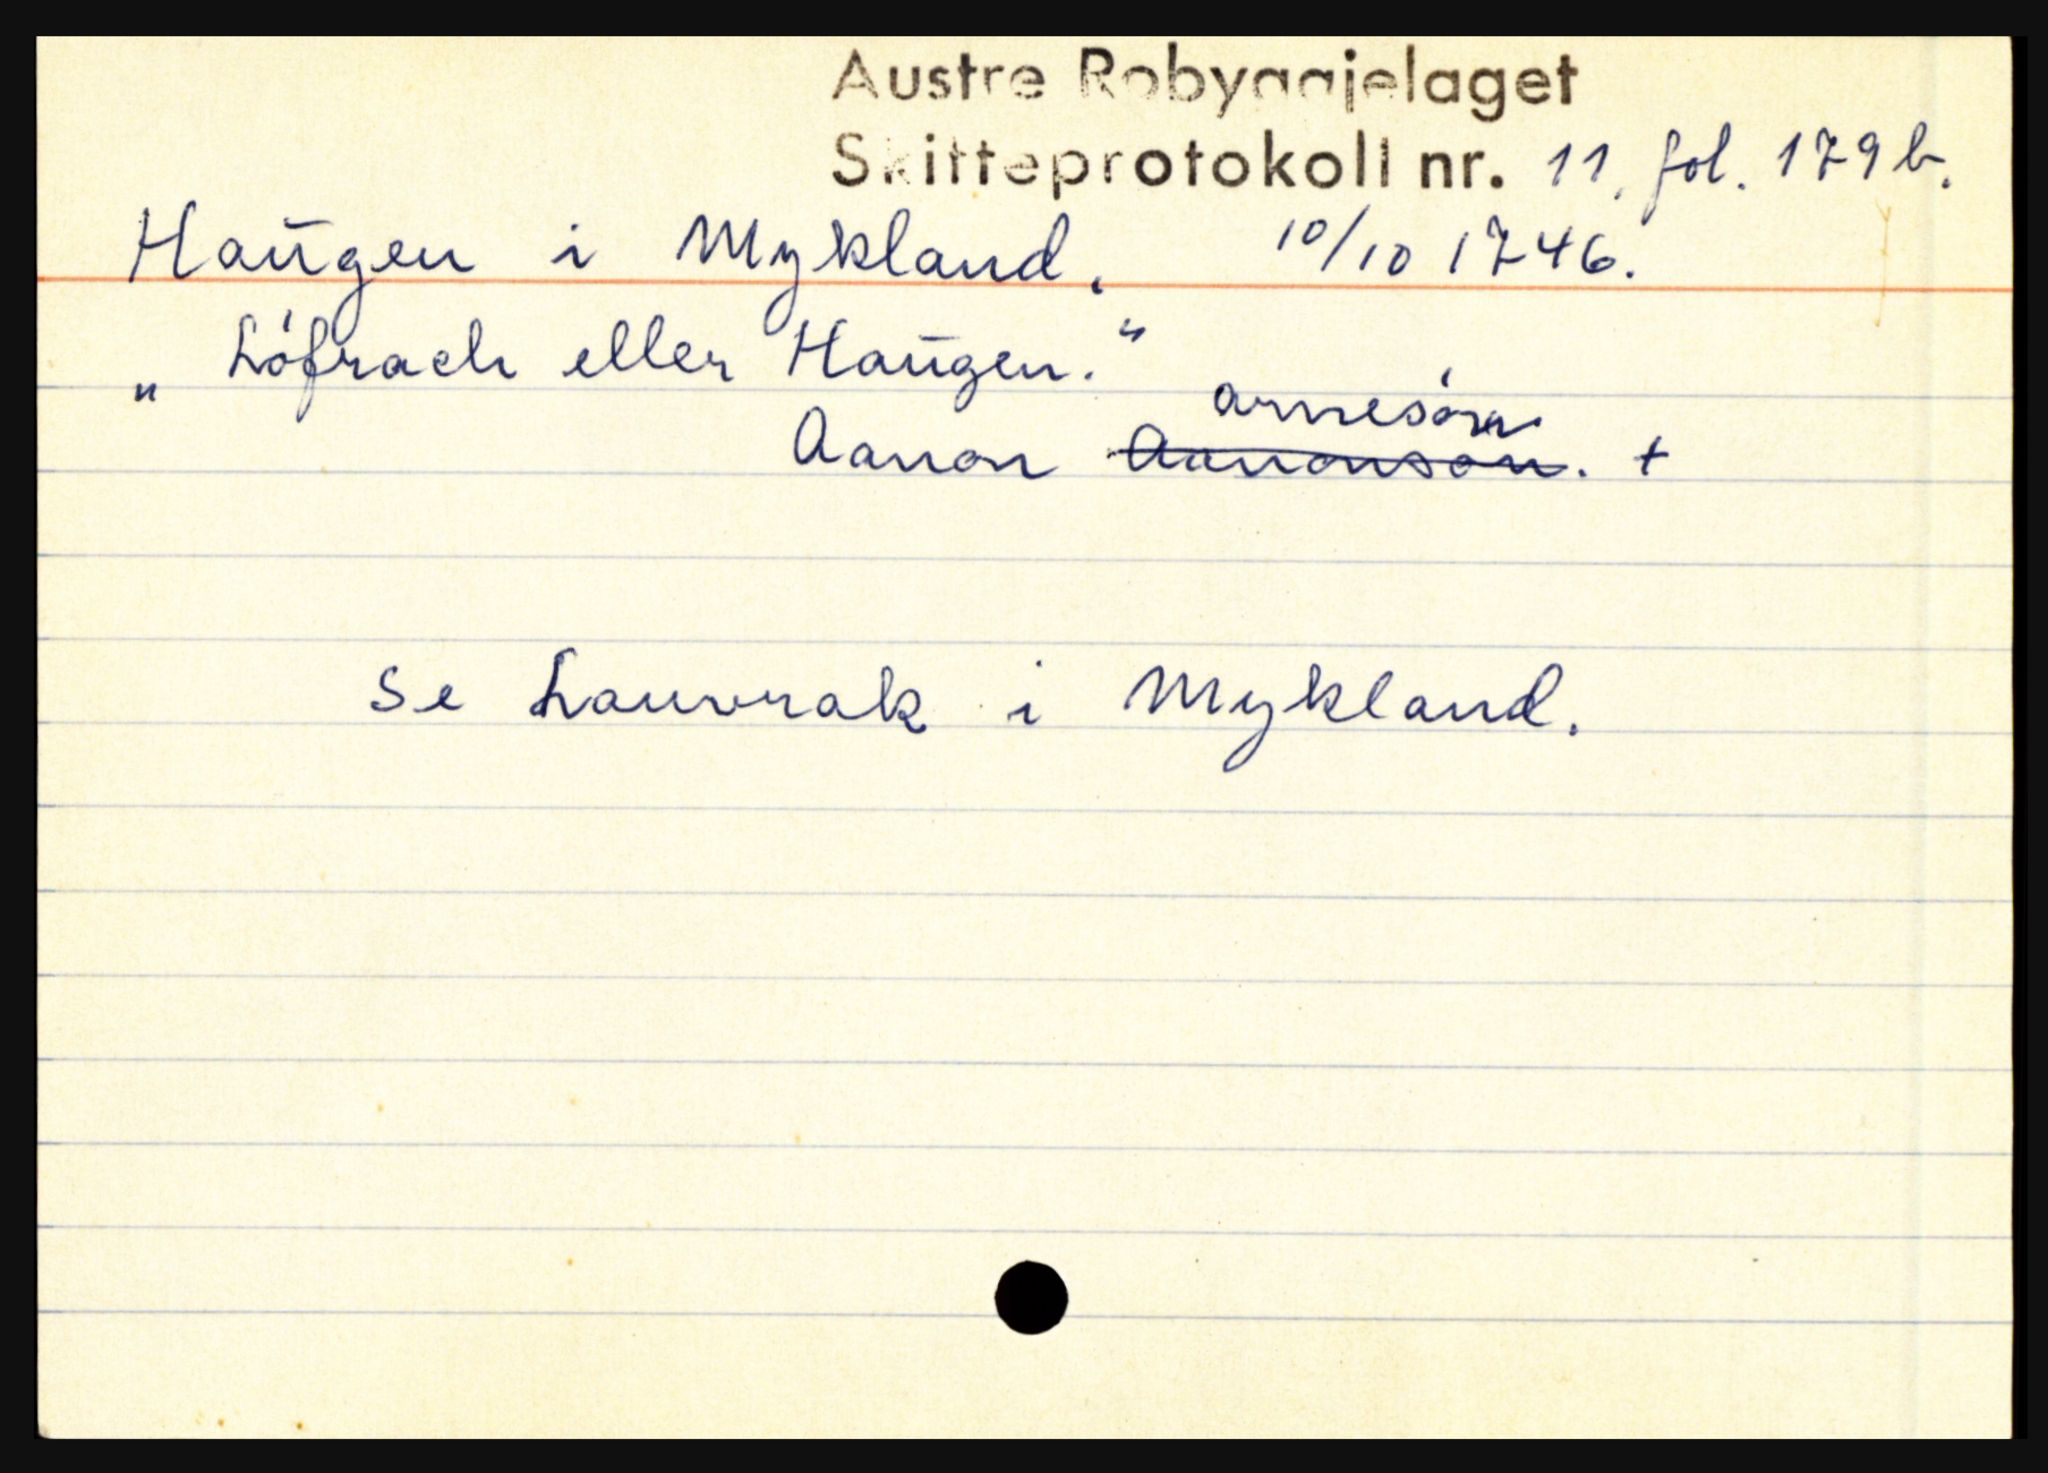 Austre Robyggjelaget
Skifteprotokoll nr. 11, fol. 179 b.
Haūgen i Mykland. 10/10 1746.
„ Lófrach eller Haūgen.“
arnesón
Aanon Aanonson. +
Se Lauvrak i Mykland.